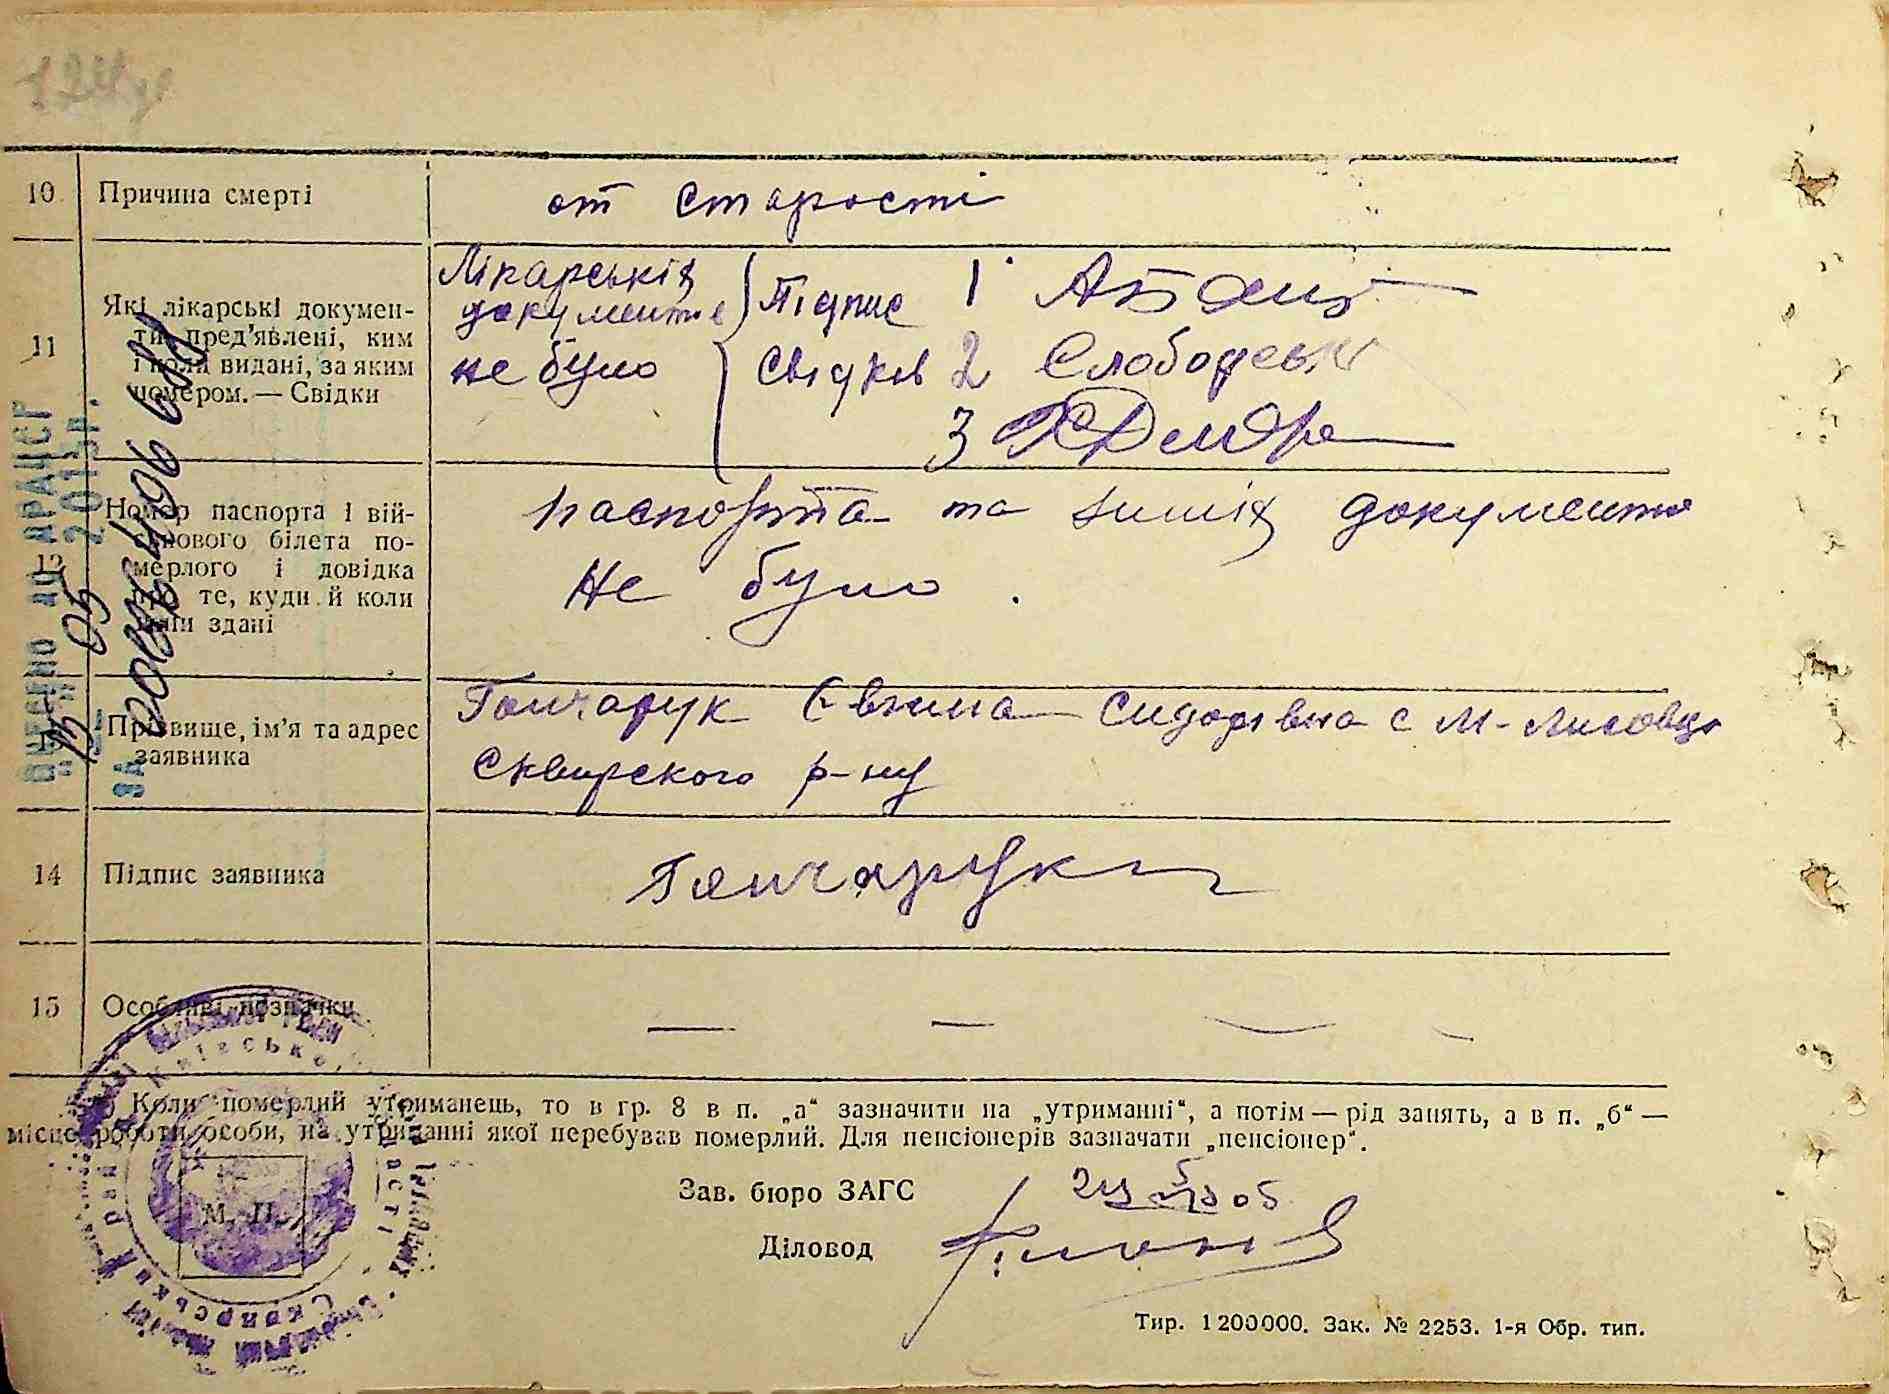 10 Причина смерті от старості
11 Які лікарські докумен-
ти пред'явлені, ким
і коли видані, за яким
номером. — Свідки
Лікарських
документів
не було
Підпис
Свідків
1
2 Слободян
3
12 Номер паспорта і вій-
ськового білета по-
мерлого і довідка
про те, куди й коли
вони здані
паспорта та інших документів
не було.
13 Прізвище, ім'я та адрес
заявника
Гончарук Євгина Сидорівна с М-Лисовці
Сквирского р-ну
14 Підпис заявника Гончарук
15 Особливі позначки — — — —
ВНЕСЕНО ДО ДРАЦСГ
"13" 05 2015р.
ЗА
*) Коли померлий утриманець, то в гр. 8 в п. „а“ зазначити на „утриманні“, а потім — рід занять, а в п. „б“ —
місце роботи особи, на утриманні якої перебував померлий. Для пенсіонерів зазначати „пенсіонер“.
Зав. бюро ЗАГС
Діловод
М. П.
Тир. 1200000. Зак. № 2253. 1-я Обр. тип.